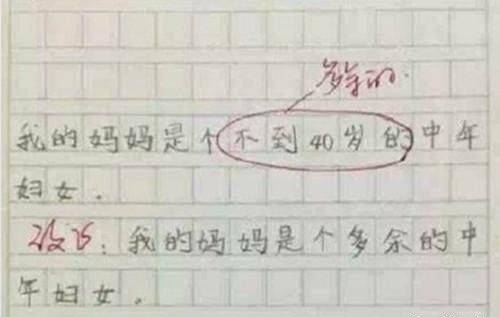 多余的.
我的妈妈是个不到40岁的中年
妇女.
改正:我的妈妈是个多余的中
年妇女.